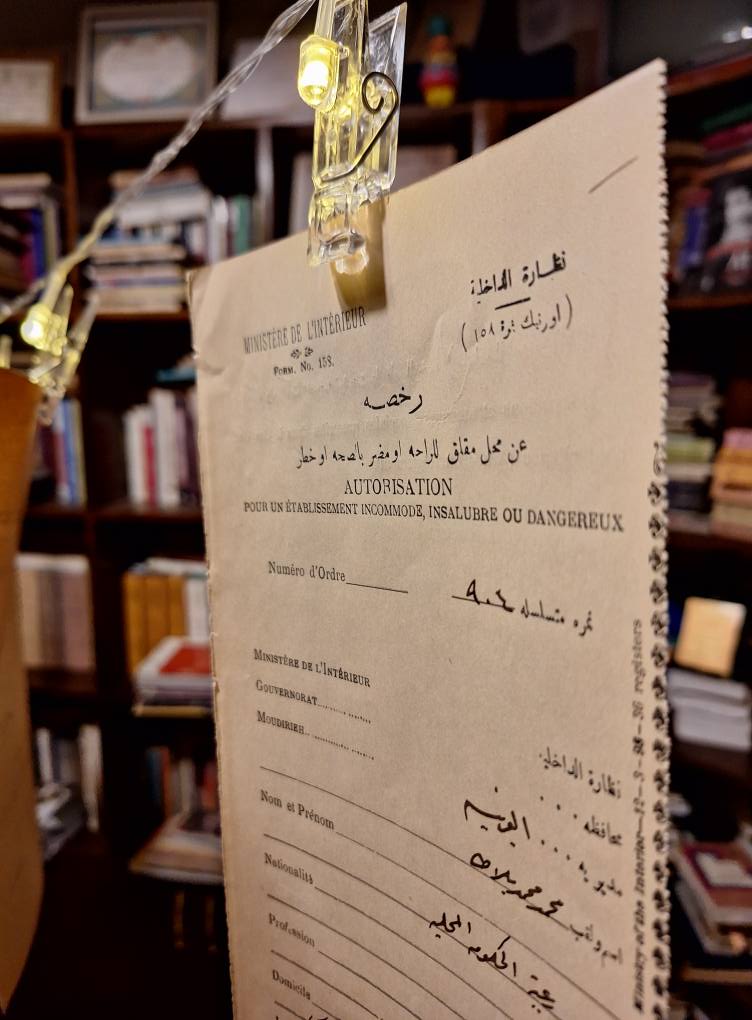 MINISTÈRE DE L'INTÉRIEUR
FORM. No. 158.
نظارة الداخلية
(اورنيك نمرة ١٥٨)
رخصه
عن محل مقلق للراحه او مضر بالصحه او خطار
AUTORISATION
POUR UN ÉTABLISSEMENT INCOMMODE, INSALUBRE OU DANGEREUX
Numéro d'Ordre
نمره متسلسله
MINISTÈRE DE L'INTÉRIEUR
GOUVERNORAT
MOUDIRIEH
نظارة الداخلية
محافظه
مديريه
Nom et Prénom
اسم ولقب محمد محمد
Nationalité
رعية الحكومه المحليه
Profession
Domicile
Ministry of the Interior—12—3—98—36 registers